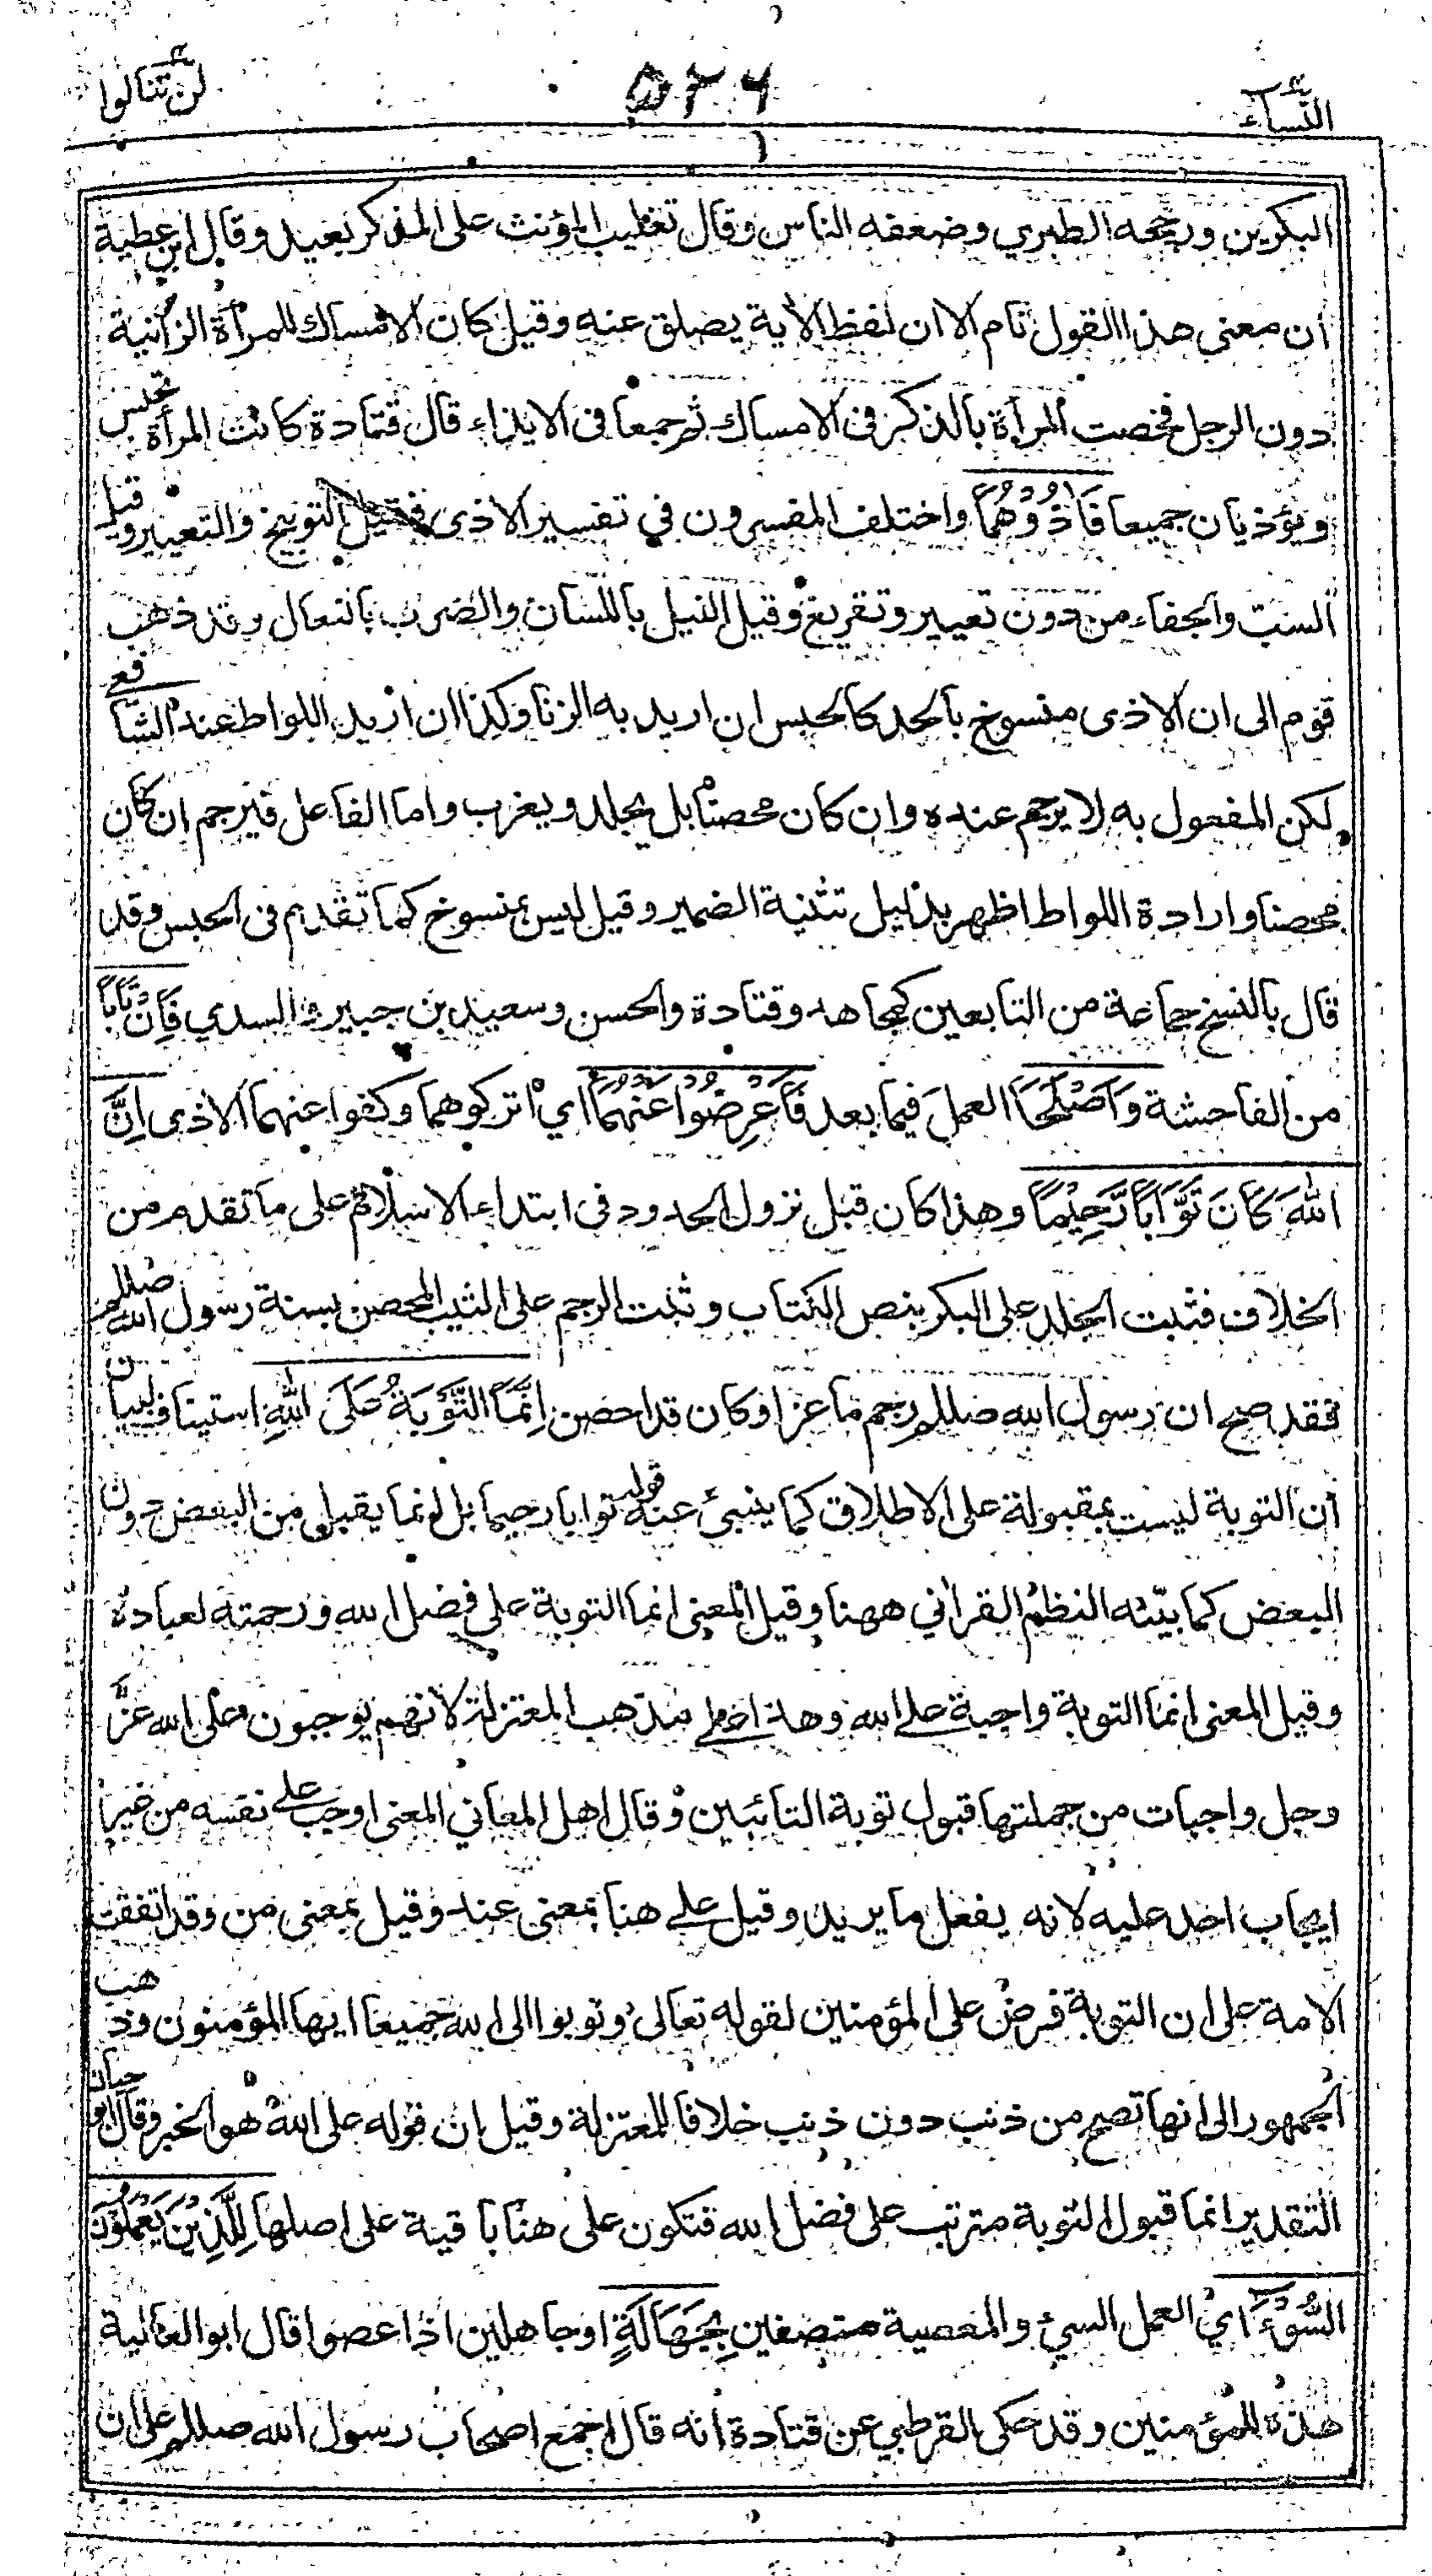 النساء ٥٢٦ لن تنالوا
البكرين ورجحه الطبري وضعفه الناس وقال تغليب المؤنث على المذكر بعيد وقال ابن عطية
ان معنى هذا القول تام الا ان لفظ الأية يضلق عنه وقيل كان الامساك للمرأة الزانية
دون الرجل فخصت المرأة بالذكر في الامساك ثم جمعا في الايذاء قال قتادة كانت المرأة تحبس
ويؤذيان جميعا فَاٰذُوْهُمَا واختلف المفسرون في تفسير الاذى فقيل التوبيخ والتعيير وقيل
السبّ والجفاء من دون تعيير وتقريع وقيل النيل باللسان والضرب بالنعال وقد ذهب
قوم الى ان الاذى منسوخ بالحد كالحبس ان اريد به الزنا وكذا ان اريد اللواط عند الشافعي
لكن المفعول به لا يرجم عنده وان كان محصنا بل يجلد ويغرب واما الفاعل فيرجم ان كان
محصنا وارادة اللواط اظهر بدليل تثنية الضمير وقيل ليس بمنسوخ كما تقدم في الحبس وقد
قال بالنسخ جماعة من التابعين كمجاهد وقتادة والحسن وسعيد بن جبير والسدي فَاِنْ تَابَا
من الفاحشة وَاَصْلَحَا العمل فيما بعد فَاَعْرِضُوْا عَنْهُمَا اي اتركوهما وكفوا عنهما الاذى اِنَّ
اللهَ كَانَ تَوَّابًا رَّحِيْمًا وهذا كان قبل نزول الحدود في ابتداء الاسلام على ما تقدم من
الخلاف فثبت الجلد على البكر بنص الكتاب وثبت الرجم على الثيب المحصن بسنة رسول الله صللم
فقد صح ان رسول الله صللم رجم ماعزا وكان قد احصن اِنَّمَا التَّوْبَةُ عَلَى اللهِ استيناف لبيان
أن التوبة ليست بمقبولة على الاطلاق كما ينبئ عنه قوله توابا رحيما بل انما يقبل من البعض دون
البعض كما بيّنه النظم القرأني ههنا وقيل المعنى انما التوبة على فضل الله ورحمته لعباده
وقيل المعنى انما التوبة واجبة على الله وهذا على مذهب المعتزلة لانهم يوجبون على الله عزّ
وجل واجبات من جملتها قبول توبة التائبين وقال اهل المعاني المعنى اوجب على نفسه من غير
ايجاب احد عليه لانه يفعل ما يريد وقيل على هنا بمعنى عند وقيل بمعنى من وقد اتفقت
الامة على ان التوبة فرض على المؤمنين لقوله تعالى وتوبوا الى الله جميعا ايها المؤمنون وذهب
الجمهور الى انها تصح من ذنب دون ذنب خلافا للمعتزلة وقيل ان قوله على الله هو الخبر وقال ابو حيان
التقدير انما قبول التوبة مترتب على فضل الله فتكون على هنا باقية على اصلها لِلَّذِيْنَ يَعْمَلُوْنَ
السُّوْءَ اي العمل السيئ والمعصية متصفين بِجَهَالَةٍ او جاهلين اذا عصوا قال ابو العالية
هذه للمؤمنين وقد حكى القرطبي عن قتادة انه قال اجمع اصحاب رسول الله صللم على ان